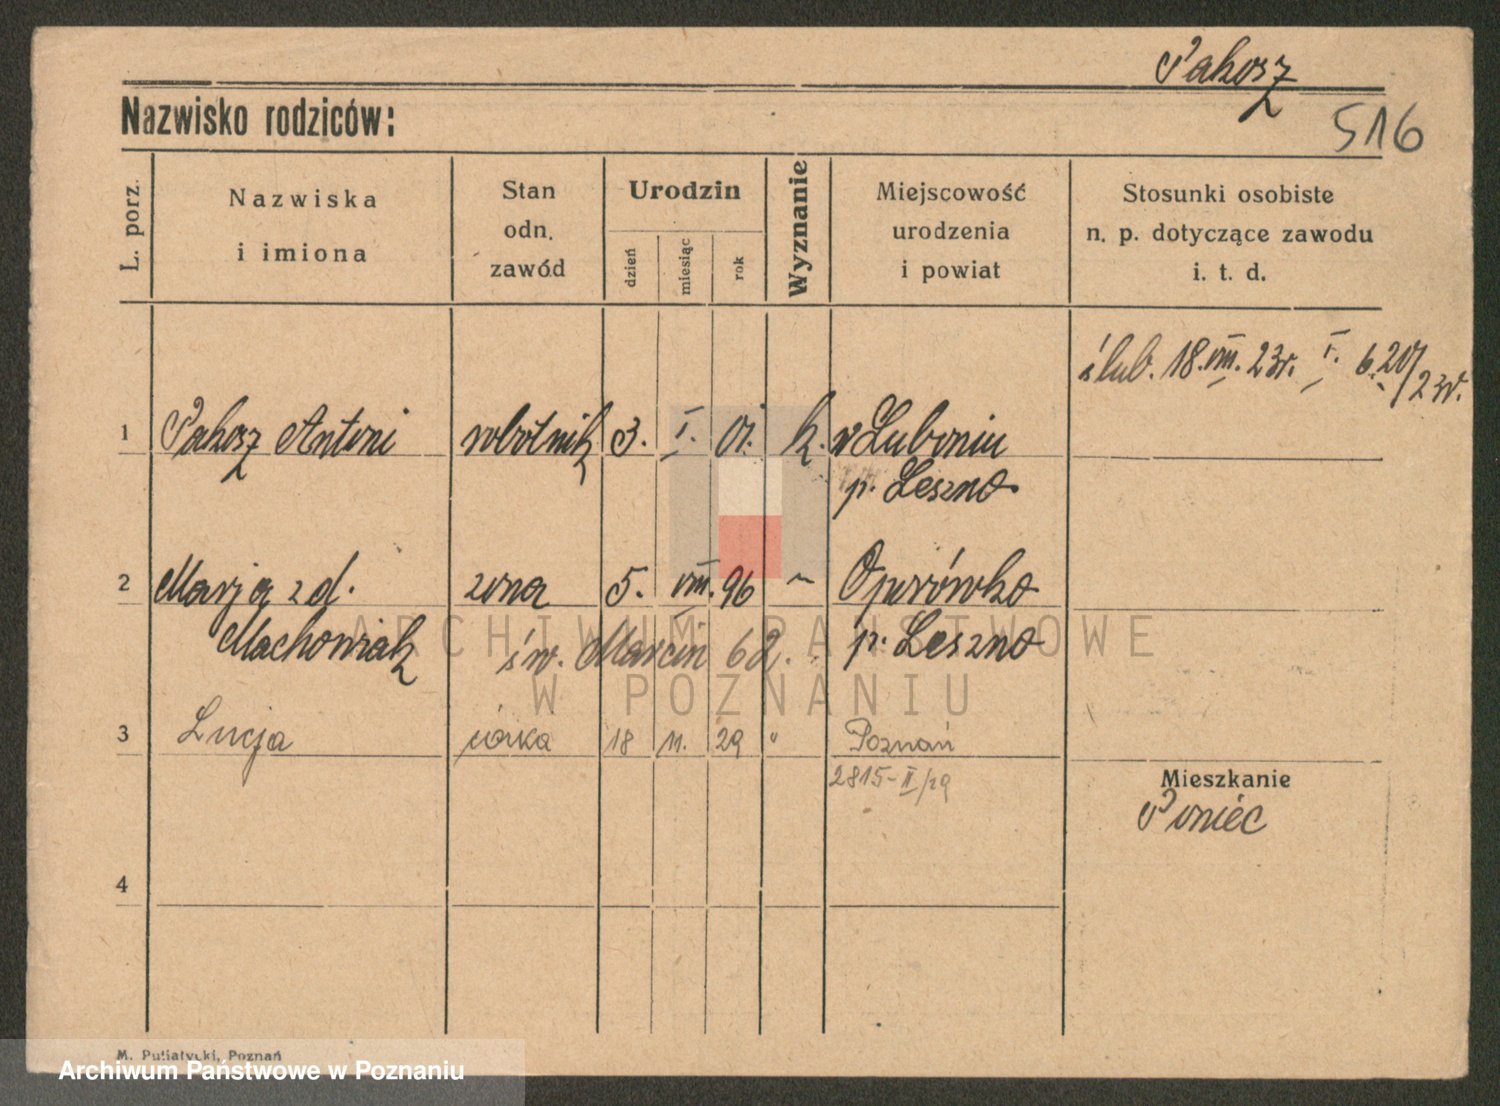 Pakosz
516
Nazwisko rodziców:
L. porz.
Nazwiska
i imiona
Stan
odn.
zawód
Urodzin
dzień
miesiąc
rok
Wyznanie
Miejscowość
urodzenia
i powiat
Stosunki osobiste
n. p. dotyczące zawodu
i. t. d.
ślub. 18.VIII.23r. 6.20/23r.
1 Pakosz Antoni robotnik 3. I. 01. k. w Luboniu
p. Leszno
2 Marja z d. żona 5. VIII. 96 " Oporówko
Machowiak św. Marcin 62. p. Leszno
3 Lucja córka 18 11. 29 " Poznań
2815-II/29
Mieszkanie
Poniec
4
ARCHIWUM PAŃSTWOWE
W POZNANIU
M. Putiatycki, Poznań
Archiwum Państwowe w Poznaniu